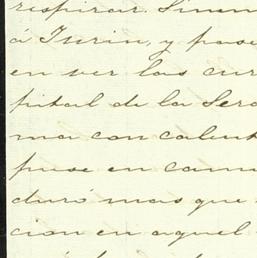 respirar. Sinm
á Turin, y pase
en ver las cur
pital de la Sera
ma con calent
puse en cama
duró mas que
cion en aquel